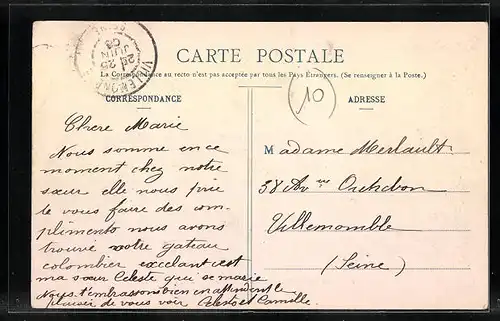 CARTE POSTALE
La Correspondance au recto n'est pas acceptée par tous les Pays Étrangers. (Se renseigner à la Poste.)
CORRESPONDANCE
ADRESSE
10
Chere Marie
Nous somme en ce
moment chez notre
sœur elle nous prie
te vous faire des com-
plimento nous avons
trouvé votre gateau
colombier exelant c'est
ma sœur Celeste qui se marie
Nous t'embrassons bien en attendent le
plaisir de vous voir Celeste et Camille
Madame Merlault
58 Av^ue
Villemomble
(Seine)